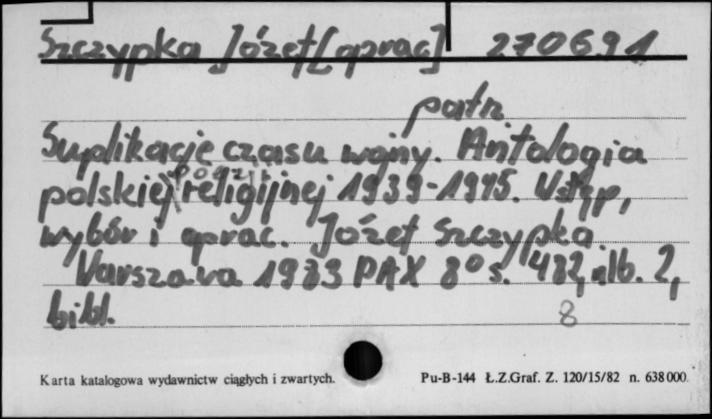 Szczypka Józef [oprac] 270691
patrz
Suplikacje czasu wojny. Antologia
poezji
polskiej religijnej 1939-1945. Wstęp,
wybór i oprac. Józef Szczypka
Warszawa 1983 PAX 8° s. 482, nlb. 2,
bibl.
8
Karta katalogowa wydawnictw ciągłych i zwartych. Pu-B-144 Ł.Z.Graf. Z. 120/15/82 n. 638000.